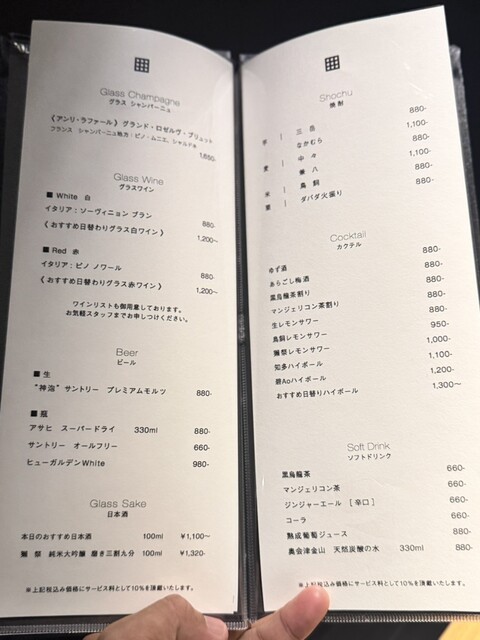 Glass Champagne
グラス シャンパーニュ
《アンリ・ラファール》 グランド・ロゼルヴ・ブリュット
フランス シャンパーニュ地方:ピノ・ムニエ、シャルドネ
1,650-
Glass Wine
グラスワイン
■ White 白
イタリア:ソーヴィニョン ブラン 880-
《おすすめ日替わりグラス白ワイン》 1,200~
■ Red 赤
イタリア:ピノ ノワール 880-
《おすすめ日替わりグラス赤ワイン》 1,200~
ワインリストも御用意しております。
お気軽スタッフまでお申しつけください。
Beer
ビール
■ 生
"神泡" サントリー プレミアムモルツ 880-
■ 瓶
アサヒ スーパードライ 330ml 880-
サントリー オールフリー 660-
ヒューガルデンWhite 980-
Glass Sake
日本酒
本日のおすすめ日本酒 100ml ¥1,100~
獺 祭 純米大吟醸 磨き三割九分 100ml ¥1,320-
※上記税込み価格にサービス料として10%を頂戴いたします。
Shochu
焼酎
芋 | 三 岳 880-
なかむら 1,100-
麦 | 中 々 880-
兼 八 1,100-
米 | 鳥 飼 880-
栗 | ダバダ火振り 880-
Cocktail
カクテル
ゆず酒 880-
あらごし梅酒 880-
黒烏龍茶割り 880-
マンジェリコン茶割り 880-
生レモンサワー 880-
鳥飼レモンサワー 950-
獺祭レモンサワー 1,000-
知多ハイボール 1,100-
碧Aoハイボール 1,200-
おすすめ日替りハイボール 1,300~
Soft Drink
ソフトドリンク
黒烏龍茶 660-
マンジェリコン茶 660-
ジンジャーエール [辛口] 660-
コーラ 660-
熟成葡萄ジュース 880-
奥会津金山 天然炭酸の水 330ml 880-
※上記税込み価格にサービス料として10%を頂戴いたします。